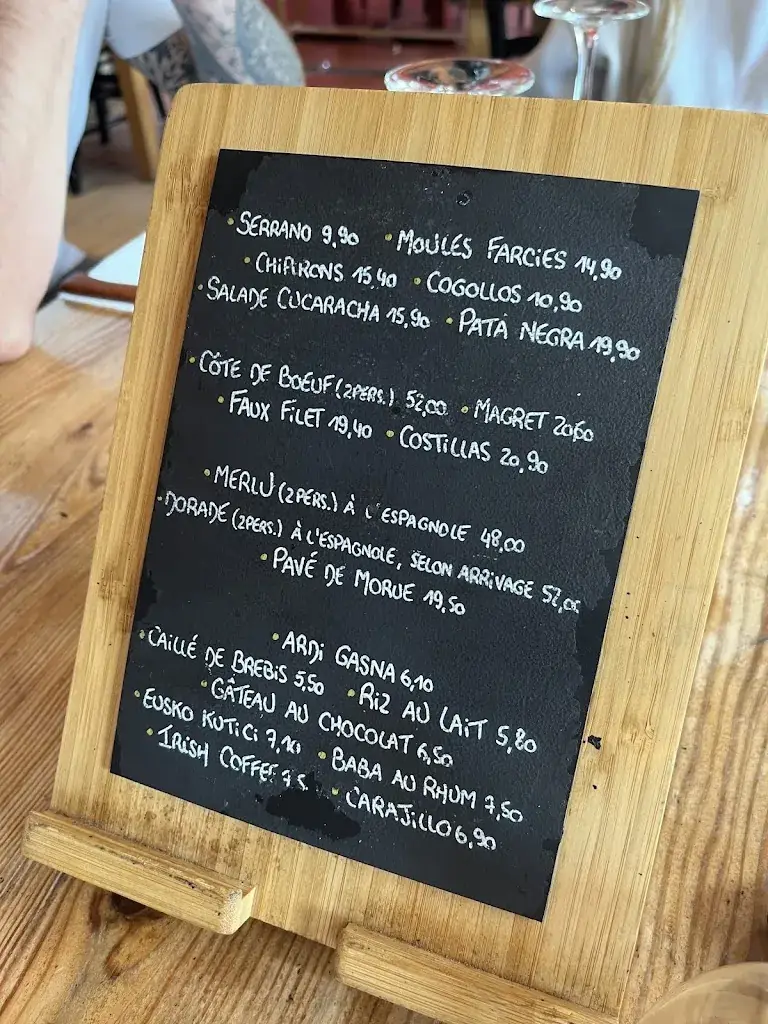 • SERRANO 9,90 • MOULES FARCIES 14,90
• CHIPIRONS 15,40 • COGOLLOS 10,90
• SALADE CUCARACHA 15,90 • PATA NEGRA 19,90
• CÔTE DE BOEUF (2PERS.) 52,00 • MAGRET 20,60
• FAUX FILET 19,40 • COSTILLAS 20,90
• MERLU (2PERS.) À L'ESPAGNOLE 48,00
• DORADE (2PERS.) À L'ESPAGNOLE, SELON ARRIVAGE 52,00
• PAVÉ DE MORUE 19,50
• ARDI GASNA 6,10
• CAILLÉ DE BREBIS 5,50 • RIZ AU LAIT 5,80
• GÂTEAU AU CHOCOLAT 6,50
• EUSKO KUTICI 7,10 • BABA AU RHUM 7,50
• IRISH COFFEE • CARAJILLO 6,90